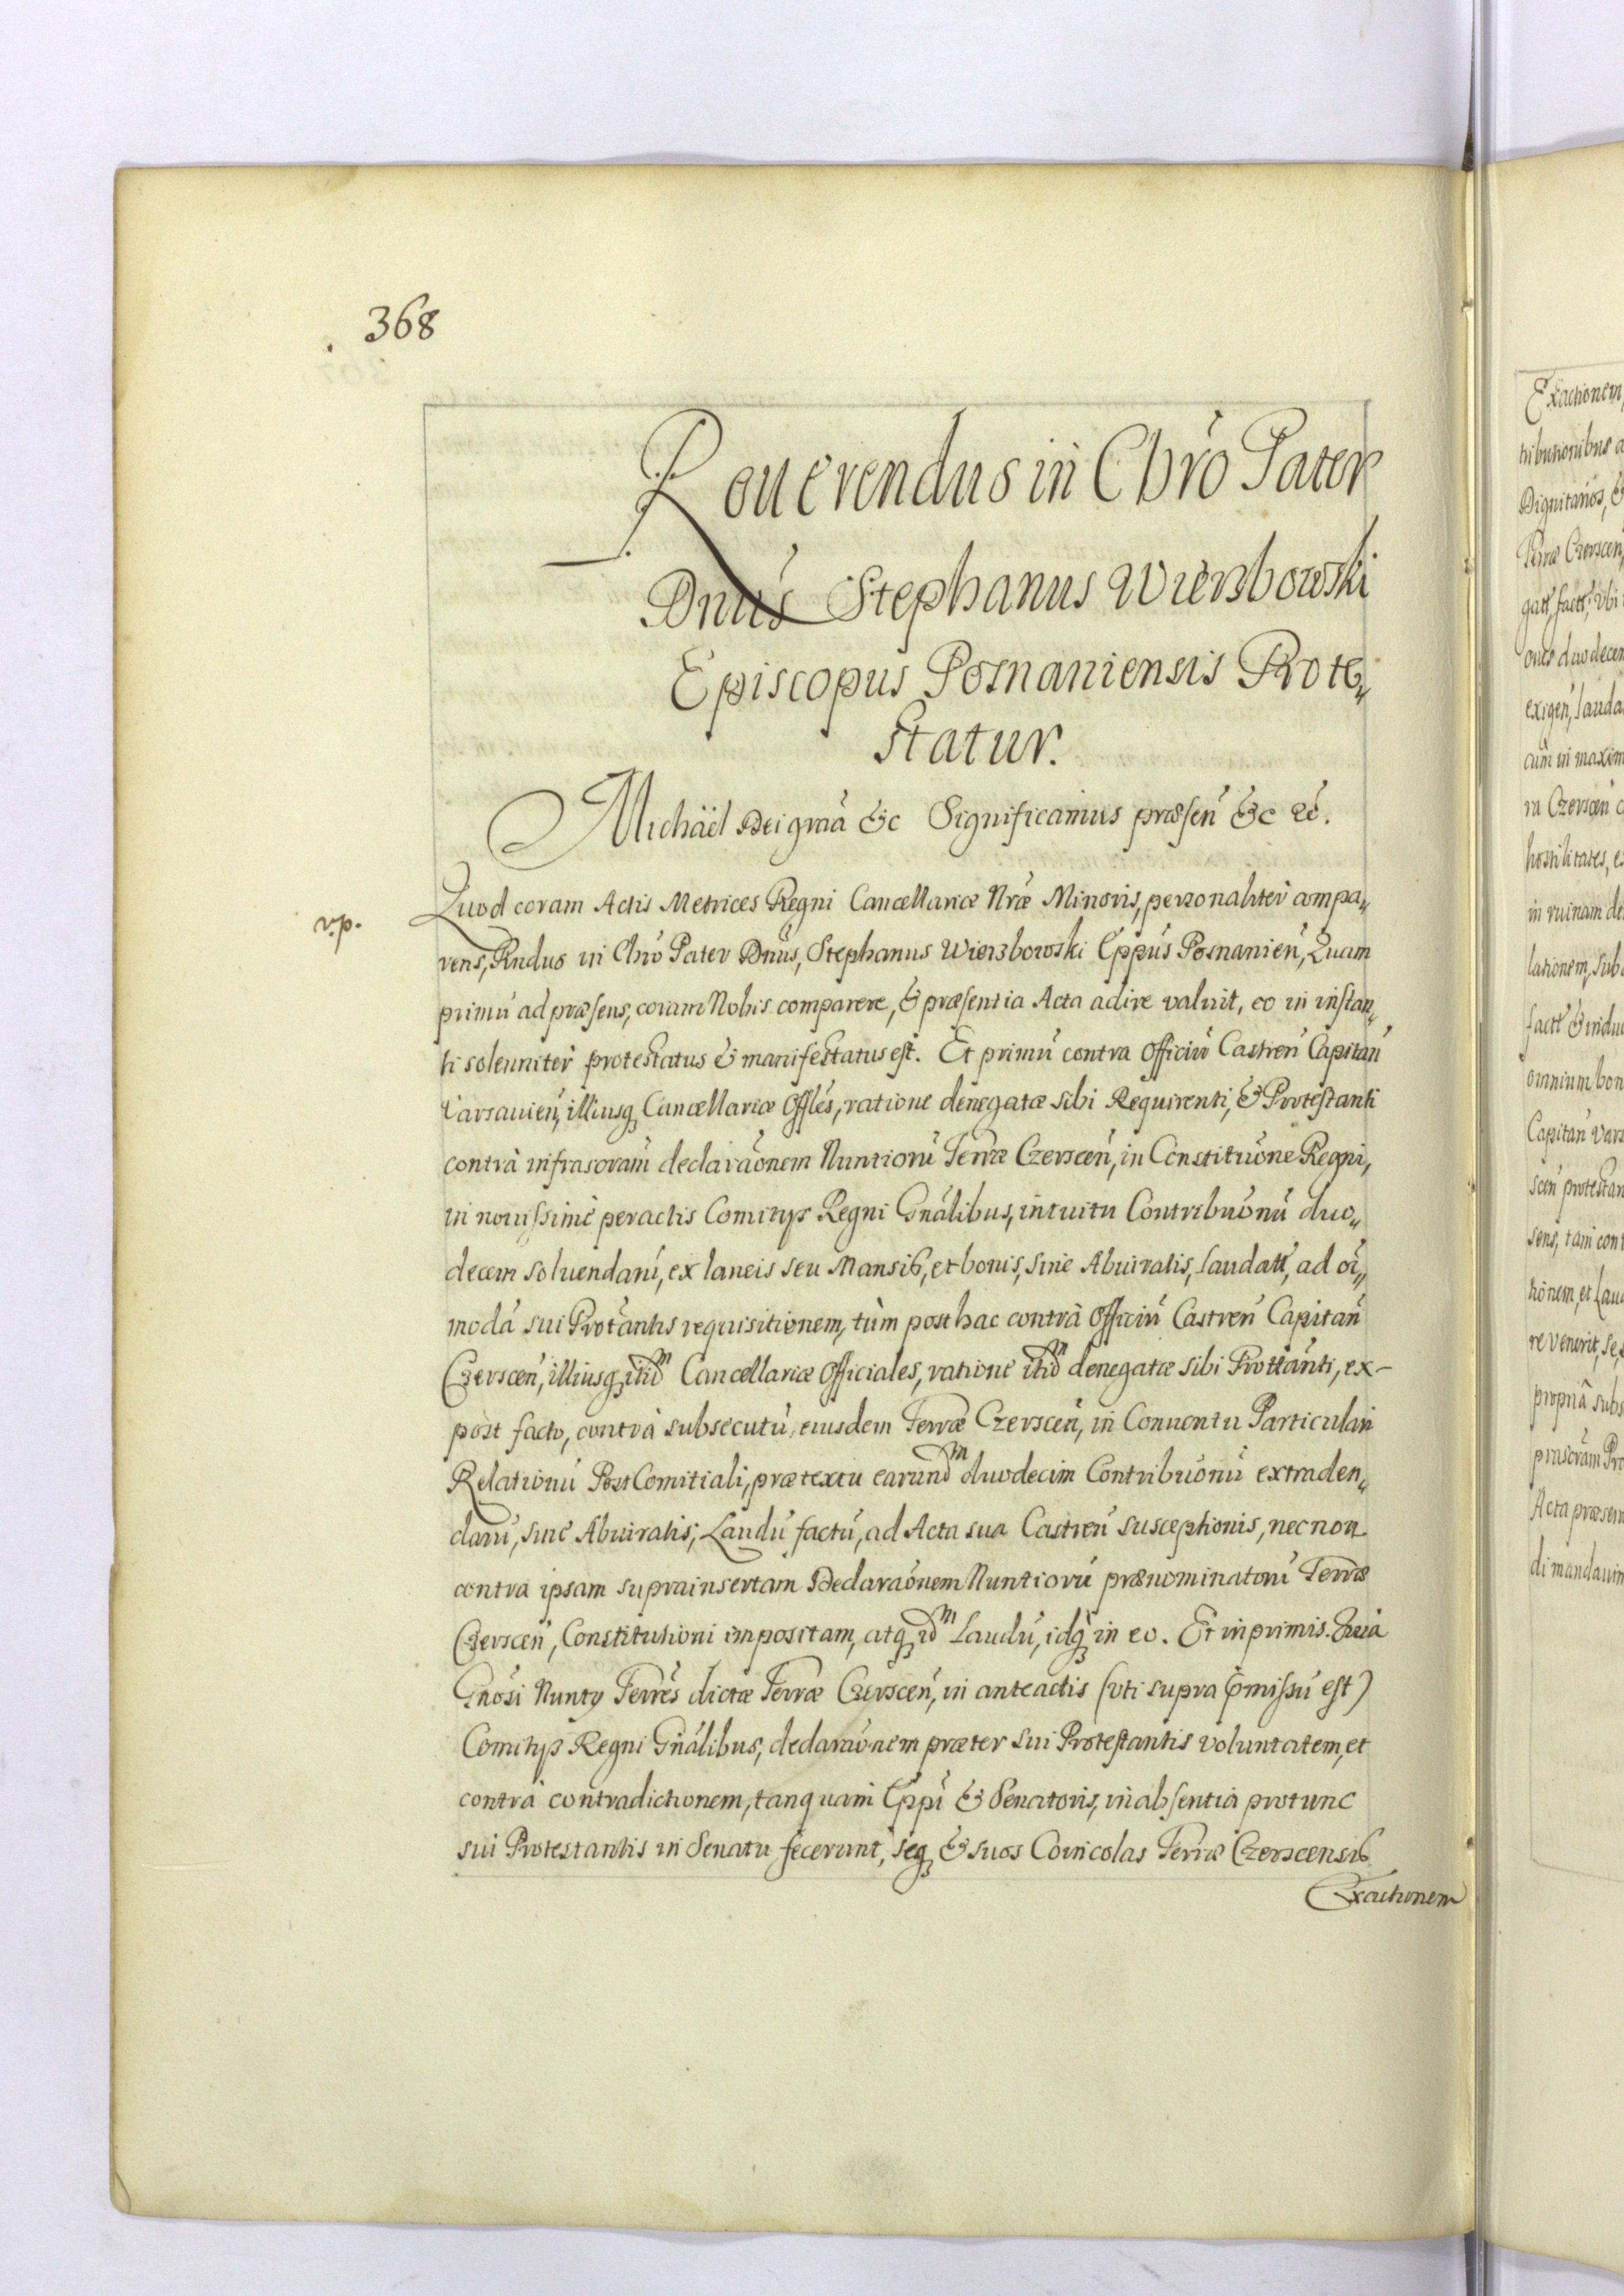 368
Reuerendus in Chrõ Pater
Dnus Stephanus Wierzbowski
Episcopus Posnaniensis Prote„
statur.
Michäel Dei graã &c Significamus præsen &c &c.
v.p.
Quod coram Actis Metrices Regni Cancellariæ Nræ Minoris, personaliter compa„
rens, Rndus in Chro Pater Dnus, Stephanus Wierzbowski Eppus Posnanien, Quam
primu ad præsens, coram Nobis comparere, & præsentia Acta adire valuit, eo in instan„
ti solenniter protestatus & manifestatus est. Et primu contra Officiu Castren Capitan
Varsauien, illiusq Cancellariæ Offles, ratione denegatæ sibi Requirenti, & Protestanti
contrà infrascram declaraonem Nuntioru Terræ Czerscen, in Constituone Regni,
in nouissime peractis Comitys Regni Gnalibus, intuitu Contribuonu duo„
decem soluendaru, ex laneis seu Mansib, et bonis, sine Abiuratis, laudatt, ad oi„
moda sui Protantis requisitionem, tùm post hac contrà Officiu Castren Capitan
Czerscen, illiusq itidm Cancellariæ Officiales, ratione itidm denegatæ sibi Prottanti, ex-
post facto, contrà subsecutu, eiusdem Terræ Czerscen, in Conuentu Particulari
Relationu PostComitiali, prætextu earundm duodecim Contribuonu extraden„
daru, sine Abiuratis, Laudu factu, ad Acta sua Castren susceptionis, necnon
contra ipsam suprainsertam Declaraonem Nuntioru prænominatoru Terræ
Czerscen, Constitutioni impositam, atq idm Laudu, idq in eo. Et inprimis. Quia
Gnosi Nunty Terres dictæ Terræ Czerscen, in anteactis (uti supra pmissu est)
Comitys Regni Gnalibus, declaraonem præter sui Protestantis voluntatem, et
contrà contradictionem, tanquam Eppi & Senatoris, in absentia protunc
sui Protestantis in Senatu fecerunt, seq & suos Coincolas Terræ Czerscensis
Exactionem
Exactionem,
tributionibus a
Dignitarios, &
Terræ Czerscen,
gatt, factt, Vbi
ones duodecem
exigen, lauda
cum in maxim
ra Czerscen c
hostilitates, e
in ruinam de
lationem, sub
factt & indu
omnium bon
Capitan Vars
scen protestan
sens, tam cont
tionem, et Lau
re venerit, se,
propriâ subs
prascram Pro
Acta præsen
di mandauim